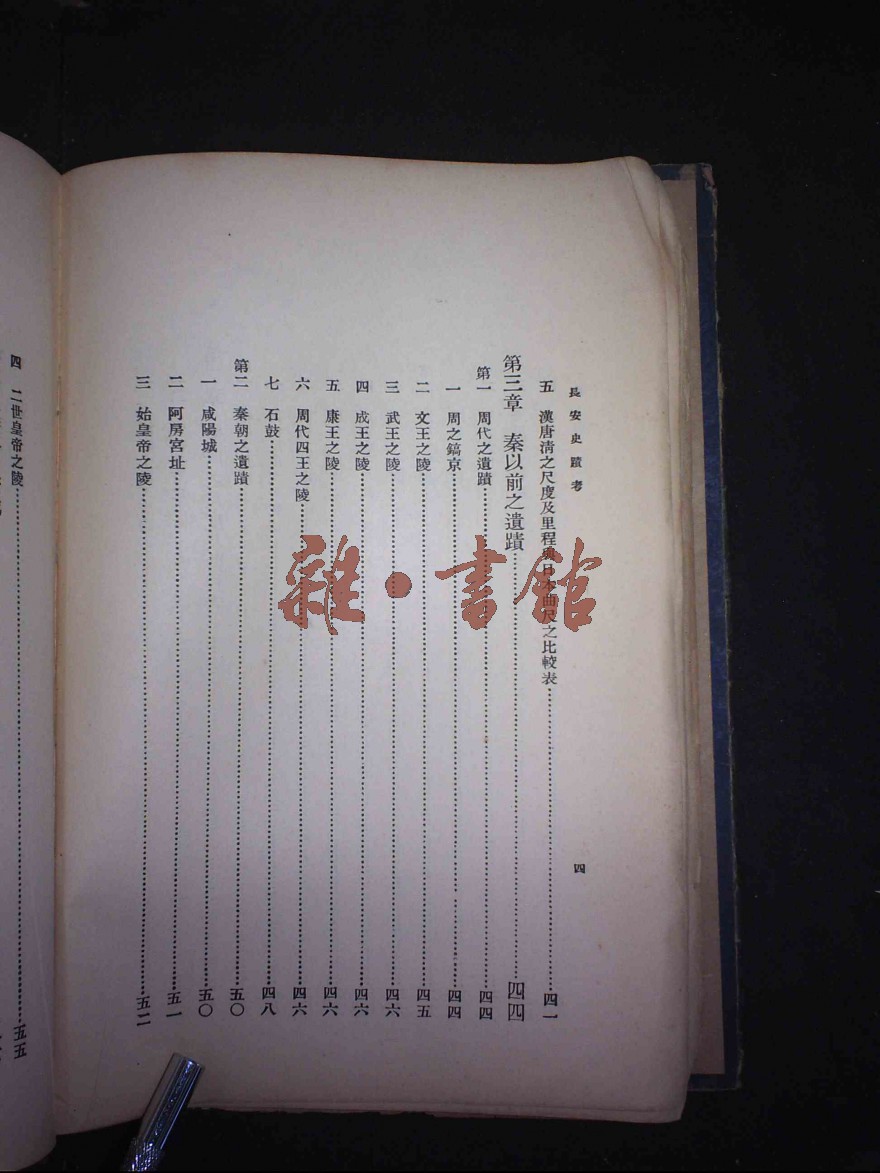 長安史蹟考
四
五 漢唐清之尺度及里程與日本曲尺之比較表 四一
第三章 秦以前之遺蹟 四四
第一 周代之遺蹟 四四
一 周之鎬京 四四
二 文王之陵 四五
三 武王之陵 四六
四 成王之陵 四六
五 康王之陵 四六
六 周代四王之陵 四六
七 石鼓 四八
第二 秦朝之遺蹟 五〇
一 咸陽城 五〇
二 阿房宮址 五一
三 始皇帝之陵 五二
四 二世皇帝之陵 五五
雜·書館